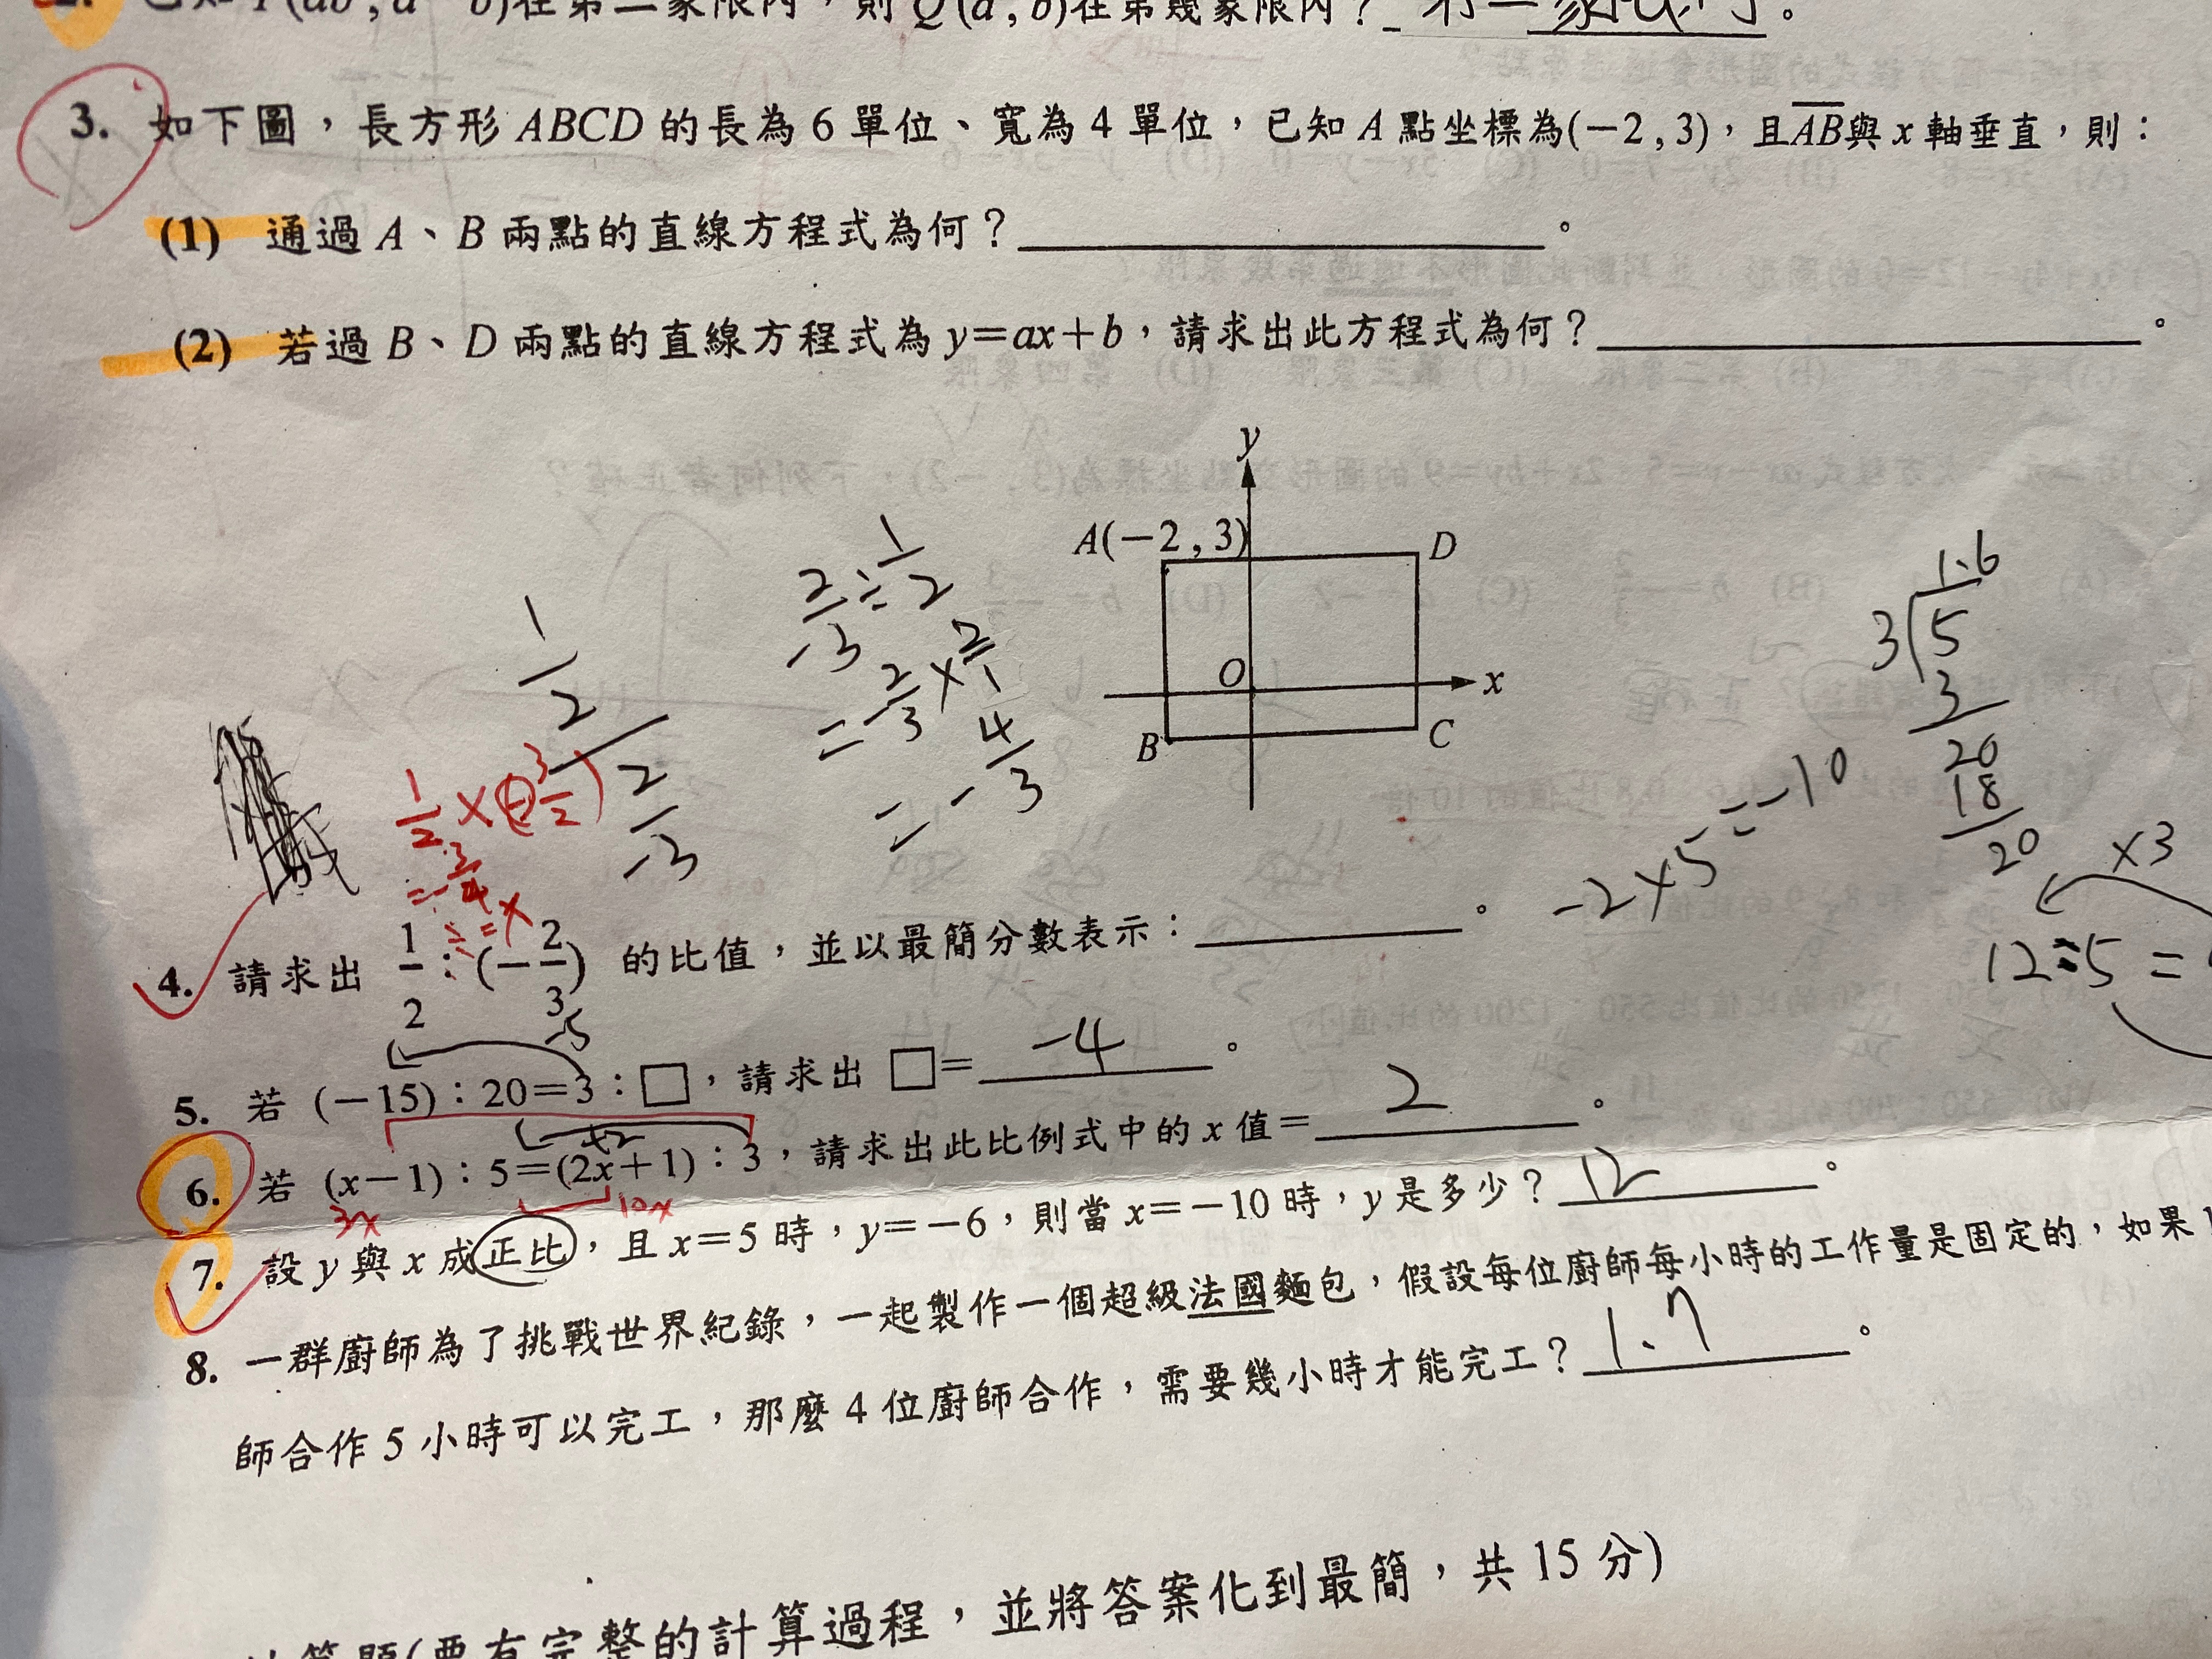 2. 已知 P(ab, a－b)在第二象限內，則 Q(a, b)在第幾象限內？
3. 如下圖，長方形 ABCD 的長為 6 單位、寬為 4 單位，已知 A 點坐標為(－2 , 3)，且AB與 x 軸垂直，則：
(1) 通過 A、B 兩點的直線方程式為何？＿＿＿＿。
(2) 若過 B、D 兩點的直線方程式為 y＝ax＋b，請求出此方程式為何？＿＿＿＿。
y
A(－2 , 3)
D
O
x
B
C
1/2
2/-3
2/-3 ÷ 1/2
= -2/3 × 2/1
= - 4/3
1/2 × (-3/2)
= -3/4
1.6
3 5
3
20
18
20
-2×5=-10
×3
12÷5=
4. 請求出 1/2：(－2/3) 的比值，並以最簡分數表示：＿＿＿＿。
-5
5. 若 (－15)：20＝3：□，請求出 □＝ -4 。
6. 若 (x－1)：5＝(2x＋1)：3，請求出此比例式中的 x 值＝ 2 。
3x
10x
7. 設 y 與 x 成正比，且 x＝5 時，y＝－6，則當 x＝－10 時，y 是多少？ 12 。
8. 一群廚師為了挑戰世界紀錄，一起製作一個超級法國麵包，假設每位廚師每小時的工作量是固定的，如果
師合作 5 小時可以完工，那麼 4 位廚師合作，需要幾小時才能完工？ 1.7 。
(要有完整的計算過程，並將答案化到最簡，共 15 分)